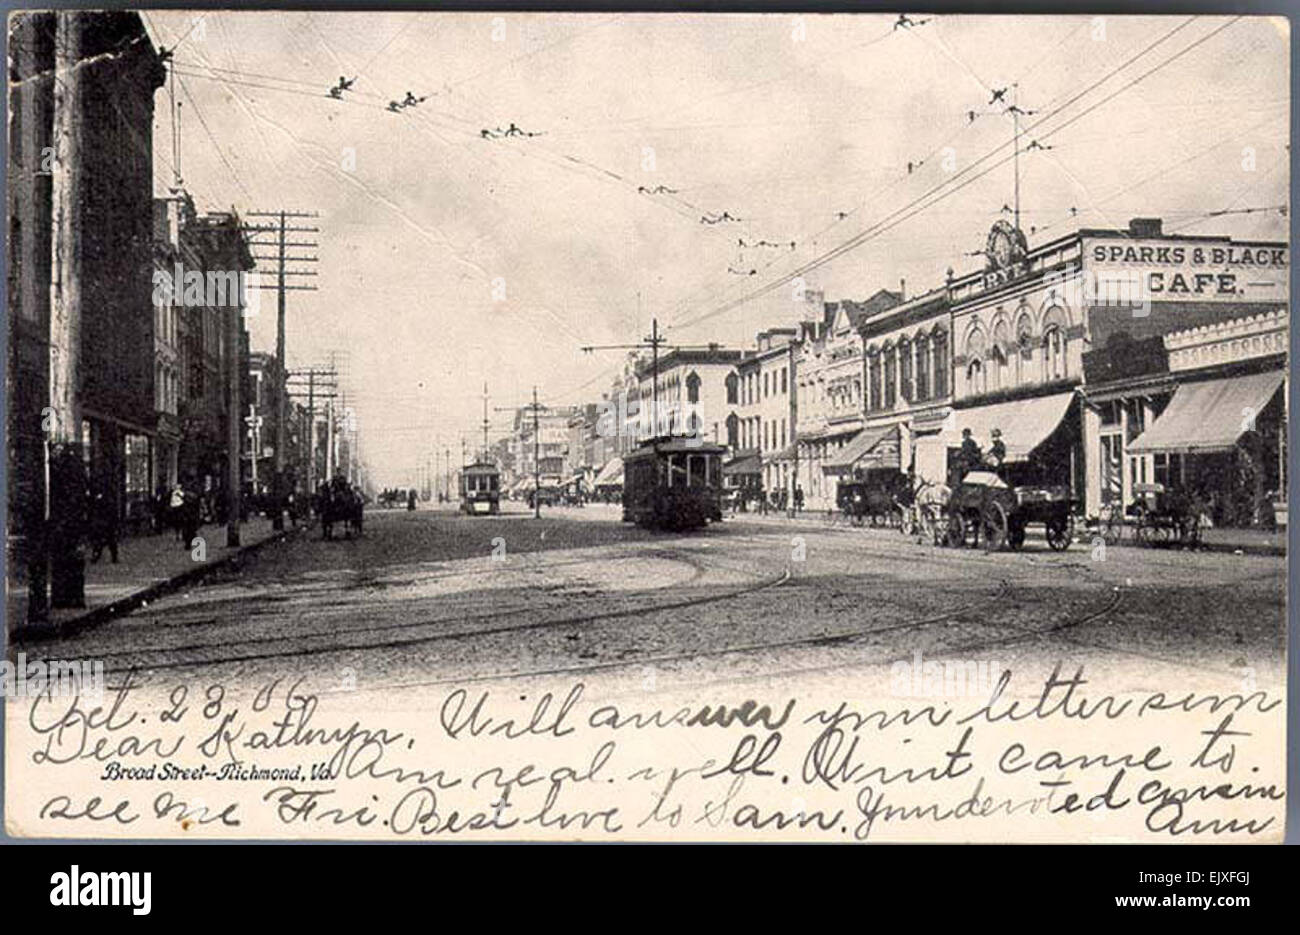 SPARKS & BLACK
CAFÉ.
RYE
Oct. 23, 06
Dear Kathryn, Will answer your letter soon
Broad Street--Richmond, Va.
Am real well. Aint came to
see me Fri. Best love to Sam. Your devoted cousin
Ann
alamy
Image ID: EJXFGJ
www.alamy.com